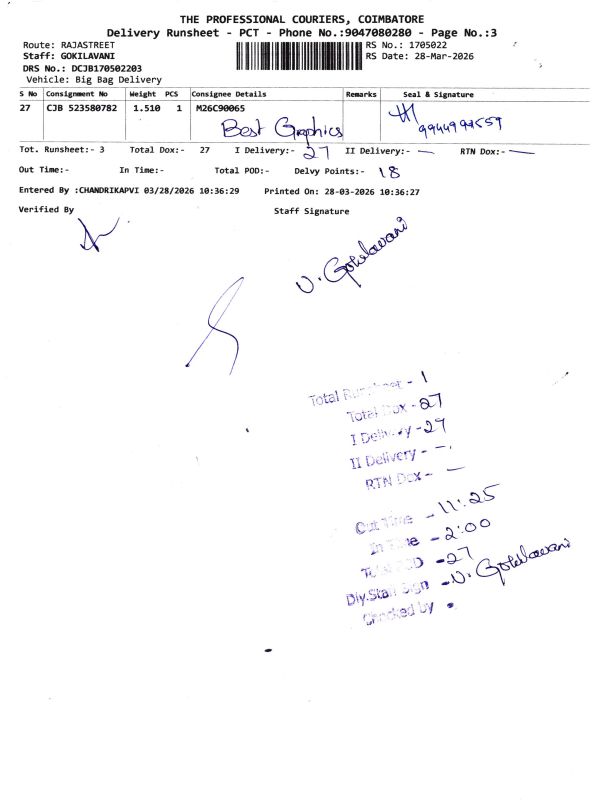 THE PROFESSIONAL COURIERS, COIMBATORE
Delivery Runsheet - PCT - Phone No.:9047080280 - Page No.:3
Route: RAJASTREET
RS No.: 1705022
Staff: GOKILAVANI
RS Date: 28-Mar-2026
DRS No.: DCJB170502203
Vehicle: Big Bag Delivery
S No Consignment No Weight PCS Consignee Details Remarks Seal & Signature
27 CJB 523580782 1.510 1 M26C90065
Best Graphics 9944994559
Tot. Runsheet:- 3 Total Dox:- 27 I Delivery:- 27 II Delivery:- — RTN Dox:- —
Out Time:- In Time:- Total POD:- Delvy Points:- 18
Entered By :CHANDRIKAPVI 03/28/2026 10:36:29 Printed On: 28-03-2026 10:36:27
Verified By Staff Signature
V. Gokilavani
Total Runsheet - 1
Total Dox - 27
I Delivery - 27
II Delivery - —
RTN Dox - —
Out Time - 11:25
In Time - 2:00
Total POD - 27
Dly.Staff Sign - V. Gokilavani
Checked by